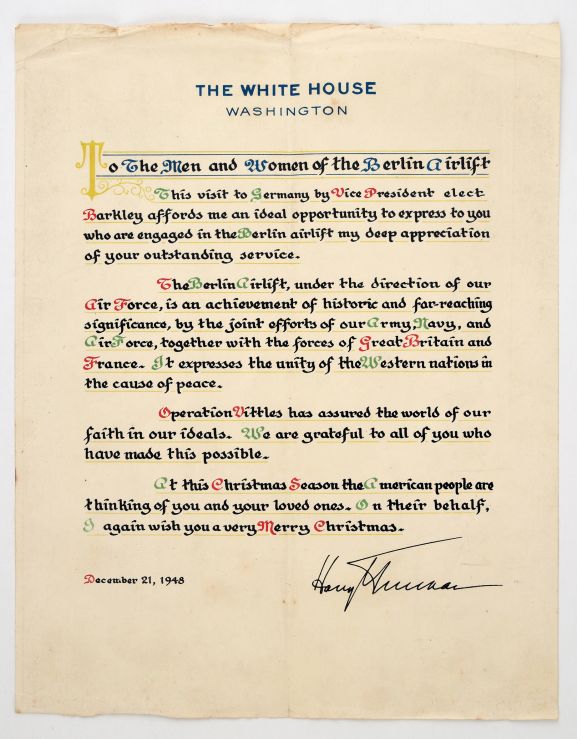 THE WHITE HOUSE
WASHINGTON
To The Men and Women of the Berlin Airlift
This visit to Germany by Vice President elect
Barkley affords me an ideal opportunity to express to you
who are engaged in the Berlin airlift my deep appreciation
of your outstanding service.
The Berlin Airlift, under the direction of our
Air Force, is an achievement of historic and far-reaching
significance, by the joint efforts of our Army, Navy, and
Air Force, together with the forces of Great Britain and
France. It expresses the unity of the Western nations in
the cause of peace.
Operation Vittles has assured the world of our
faith in our ideals. We are grateful to all of you who
have made this possible.
At this Christmas Season the American people are
thinking of you and your loved ones. On their behalf,
I again wish you a very Merry Christmas.
December 21, 1948
Harry Truman